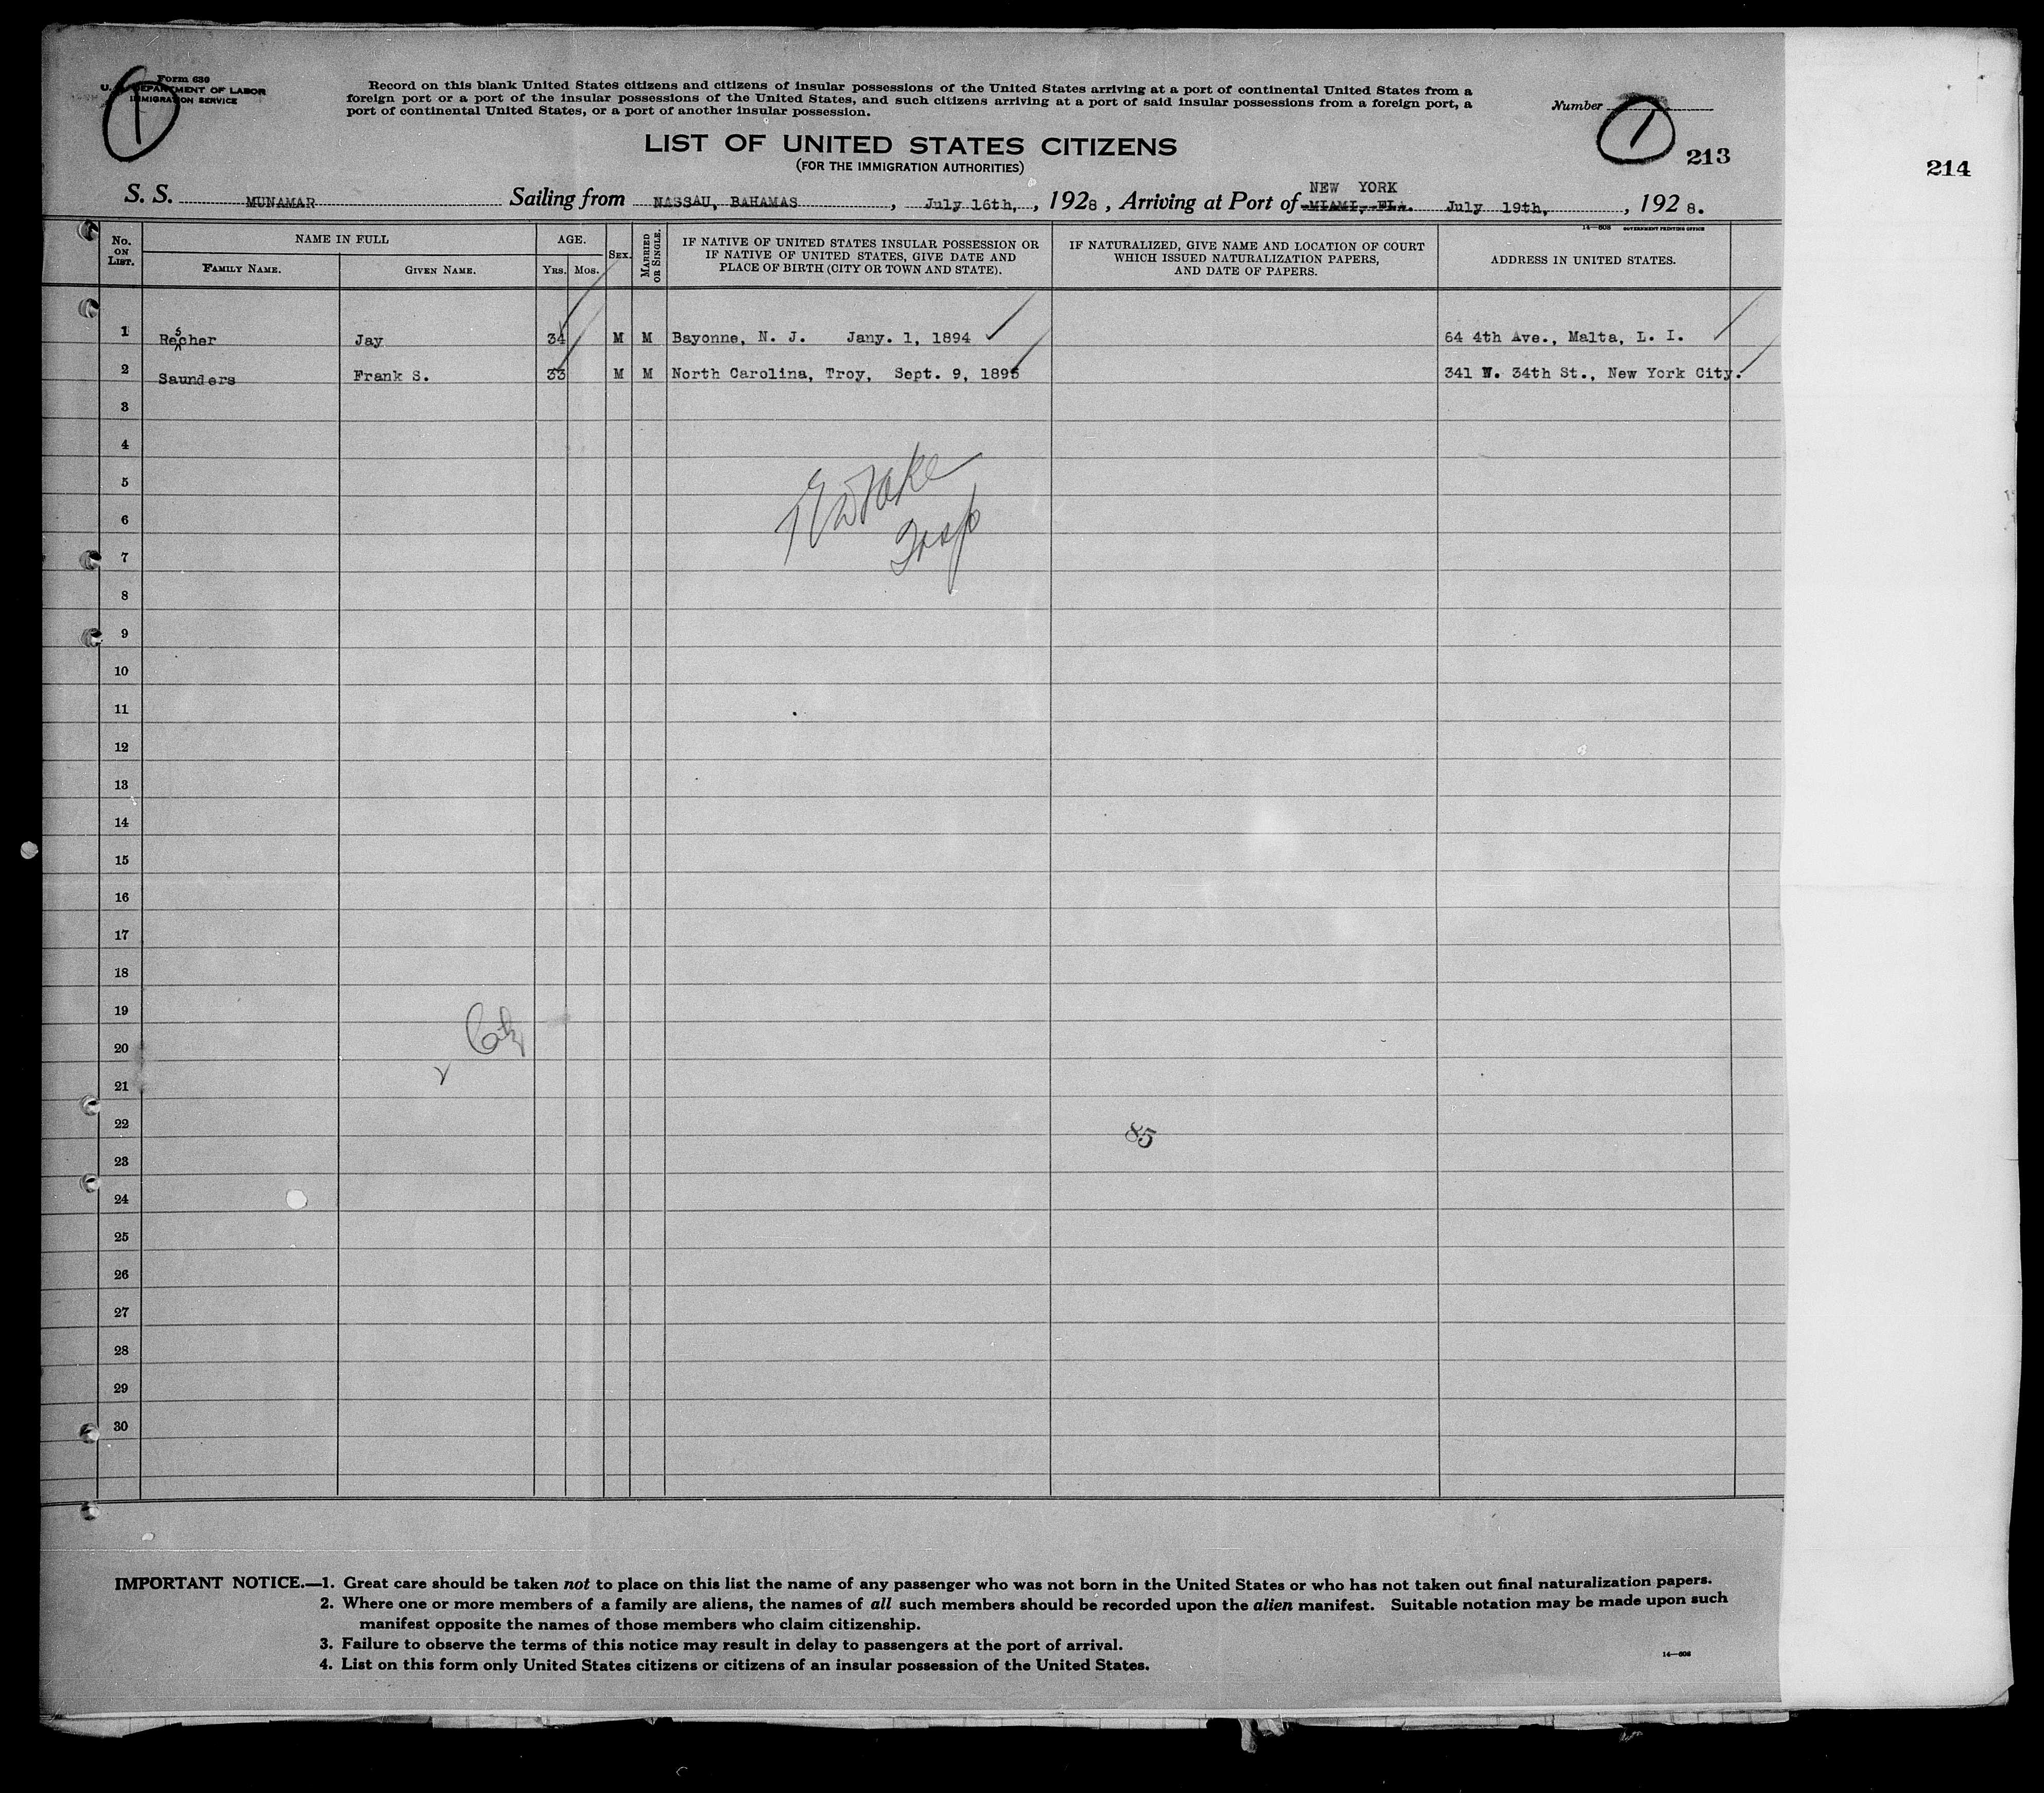 Form 630
U. S. DEPARTMENT OF LABOR
IMMIGRATION SERVICE
1
Record on this blank United States citizens and citizens of insular possessions of the United States arriving at a port of continental United States from a
foreign port or a port of the insular possessions of the United States, and such citizens arriving at a port of said insular possessions from a foreign port, a
port of continental United States, or a port of another insular possession.
Number
1
213
214
LIST OF UNITED STATES CITIZENS
(FOR THE IMMIGRATION AUTHORITIES)
S. S. MUNAMAR Sailing from NASSAU, BAHAMAS, July 16th, , 1928, Arriving at Port of MIAMI, FLA. NEW YORK July 19th, , 1928.
14—608 GOVERNMENT PRINTING OFFICE
No. ON LIST. NAME IN FULL FAMILY NAME. GIVEN NAME. AGE. YRS. MOS. SEX. MARRIED OR SINGLE. IF NATIVE OF UNITED STATES INSULAR POSSESSION OR IF NATIVE OF UNITED STATES, GIVE DATE AND PLACE OF BIRTH (CITY OR TOWN AND STATE). IF NATURALIZED, GIVE NAME AND LOCATION OF COURT WHICH ISSUED NATURALIZATION PAPERS, AND DATE OF PAPERS. ADDRESS IN UNITED STATES.
1 Rescher Jay 34 M M Bayonne, N. J. Jany. 1, 1894 64 4th Ave., Malta, L. I.
2 Saunders Frank S. 33 M M North Carolina, Troy, Sept. 9, 1895 341 W. 34th St., New York City.
3
4
5
6
7
8
9
10
11
12
13
14
15
16
17
18
19
20
21
22
85
23
24
25
26
27
28
29
30
IMPORTANT NOTICE.—1. Great care should be taken not to place on this list the name of any passenger who was not born in the United States or who has not taken out final naturalization papers.
2. Where one or more members of a family are aliens, the names of all such members should be recorded upon the alien manifest. Suitable notation may be made upon such
manifest opposite the names of those members who claim citizenship.
3. Failure to observe the terms of this notice may result in delay to passengers at the port of arrival.
4. List on this form only United States citizens or citizens of an insular possession of the United States.
14—608